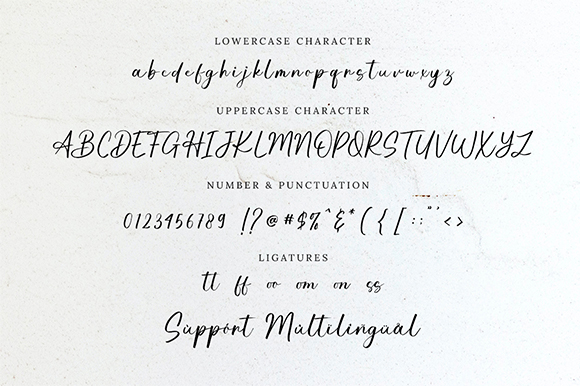 LOWERCASE CHARACTER
abcdefghijklmnopqrstuvwxyz
UPPERCASE CHARACTER
ABCDEFGHIJKLMNOPQRSTUVWXYZ
NUMBER & PUNCTUATION
0123456789 !?@#$%^&*({[::"'<>
LIGATURES
tt ff oo om on ss
Support Multilingual